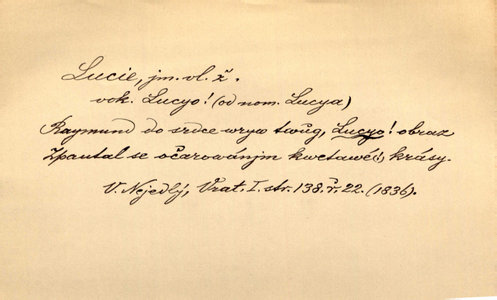 Lucie, jm. vl. ž.
vok. Lucyo! (od nom. Lucya)
Raymund do srdce wryw twůg, Lucyo! obraz
Zpautal se očarowánjm kwetawé(!) krásy.
V. Nejedlý, Vrat. I. str. 138. ř. 22. (1836).